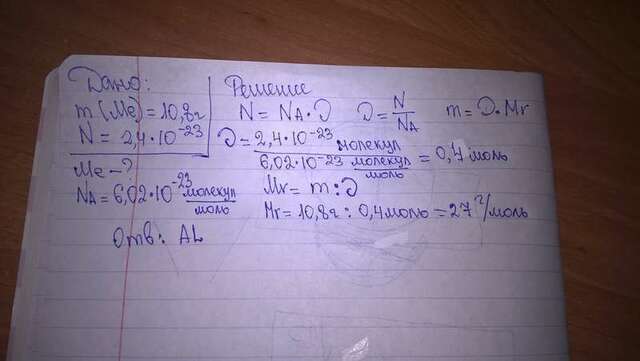 Дано:
m(Me)=10,8г
N = 2,4·10⁻²³
Me-?
NA=6,02·10⁻²³ молекул/моль
Решение
N = NA·υ υ = N/NA m=υ·Mr
υ = 2,4·10⁻²³ молекул / 6,02·10⁻²³ молекул/моль = 0,4 моль
Mr = m:υ
Mr=10,8г : 0,4моль = 27 г/моль
Отв: AL